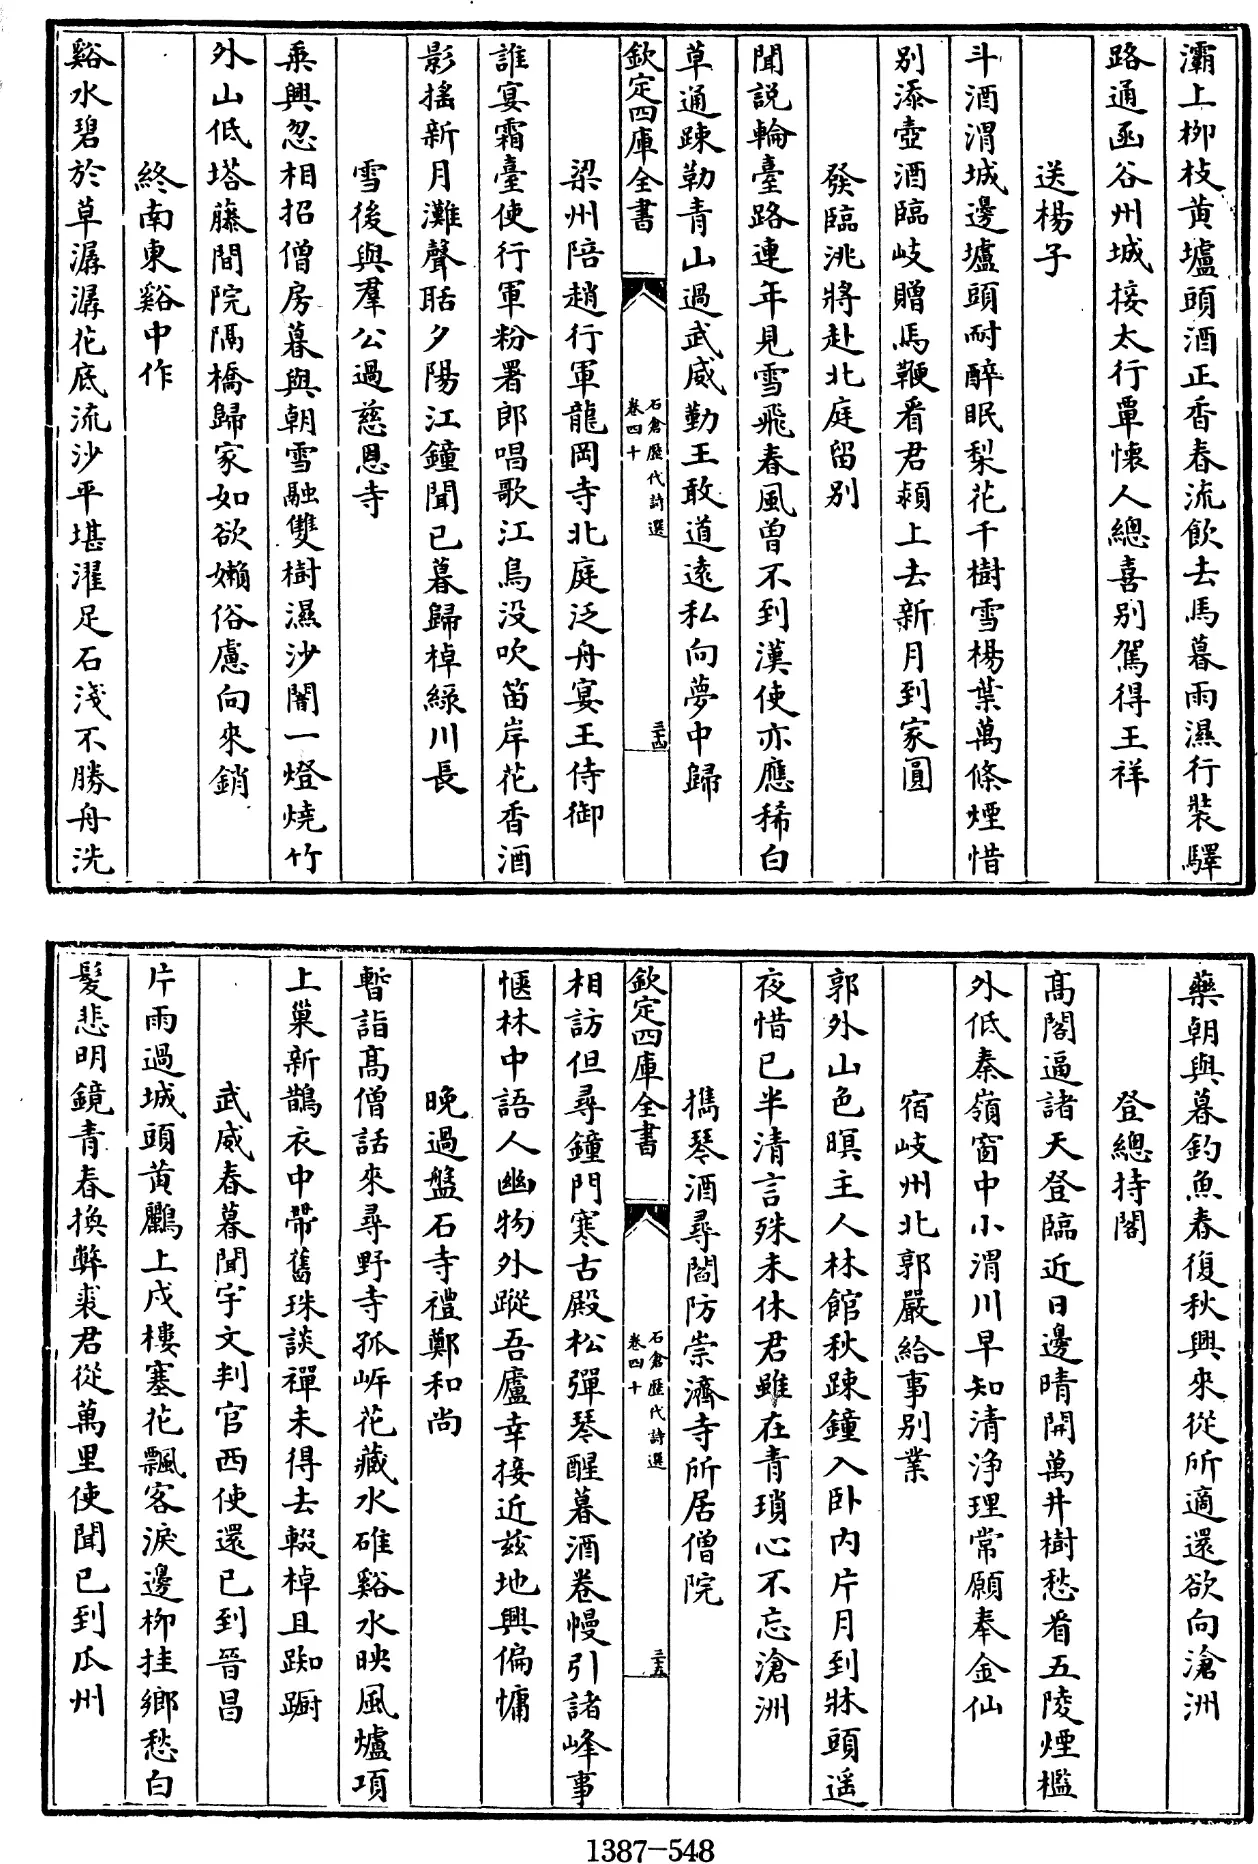 灞上柳枝黄壚頭酒正香春流飲去馬暮雨濕行装驛
路通函谷州城接太行覃懐人總喜别駕得王祥
送楊子
斗酒渭城邊壚頭耐醉眠梨花千樹雪楊葉萬條煙惜
别添壺酒臨岐贈馬鞭看君潁上去新月到家圓
發臨洮將赴北庭留别
聞説輪臺路連年見雪飛春風曽不到漢使亦應稀白
草通疎勒青山過武威勤王敢道逺私向夢中歸
欽定四庫全書
石倉歷代詩選
卷四十
三十四
梁州陪趙行軍龍岡寺北庭泛舟宴王侍御
誰宴霜臺使行軍粉署郎唱歌江鳥没吹笛岸花香酒
影揺新月灘聲聒夕陽江鐘聞已暮歸棹緑川長
雪後與羣公過慈恩寺
乘興忽相招僧房暮與朝雪融雙樹濕沙闇一燈燒竹
外山低塔藤間院隔橋歸家如欲嬾俗慮向來銷
終南東谿中作
谿水碧於草潺潺花底流沙平堪濯足石淺不勝舟洗
藥朝與暮釣魚春復秋興來從所適還欲向滄洲
登總持閣
髙閣逼諸天登臨近日邊晴開萬井樹愁看五陵煙檻
外低秦嶺窗中小渭川早知清浄理常願奉金仙
宿岐州北郭嚴給事别業
郭外山色暝主人林館秋疎鐘入卧内片月到牀頭遥
夜惜已半清言殊未休君雖在青瑣心不忘滄洲
携琴酒尋閻防崇濟寺所居僧院
欽定四庫全書
石倉歷代詩選
卷四十
三十五
相訪但尋鐘門寒古殿松彈琴醒暮酒卷幔引諸峰事
愜林中語人幽物外蹤吾廬幸接近兹地興偏慵
晩過盤石寺禮鄭和尚
暫詣髙僧話來尋野寺孤岍花藏水碓谿水映風爐項
上巢新鵲衣中帶舊珠談禪未得去輟棹且踟蹰
武威春暮聞宇文判官西使還已到晉昌
片雨過城頭黄鸝上戍樓塞花飄客淚邊柳挂鄉愁白
髮悲明鏡青春換弊裘君從萬里使聞已到瓜州
1387-548